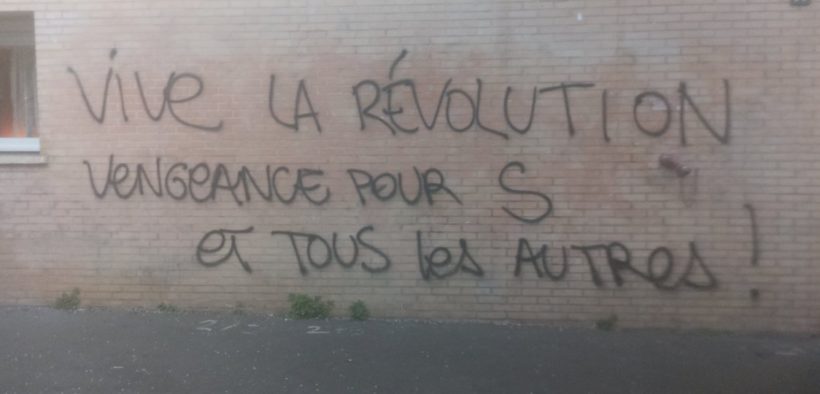 Vive LA RÉVOLUTION
VeNGeANCE POUR S
et TOUS les AUTRes !